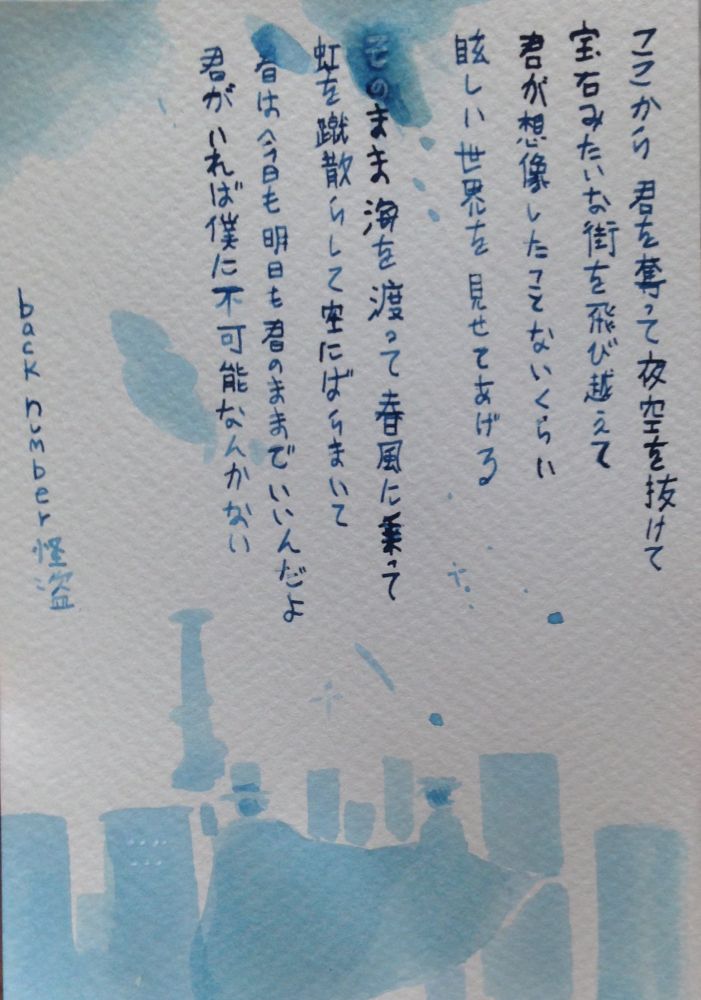 ここから 君を奪って夜空を抜けて
宝石みたいな街を飛び越えて
君が想像したことないくらい
眩しい世界を見せてあげる
そのまま 海を渡って 春風に乗って
虹を蹴散らして空にばらまいて
君は今日も明日も君のままでいいんだよ
君がいれば僕に不可能なんかない
back number 怪盗